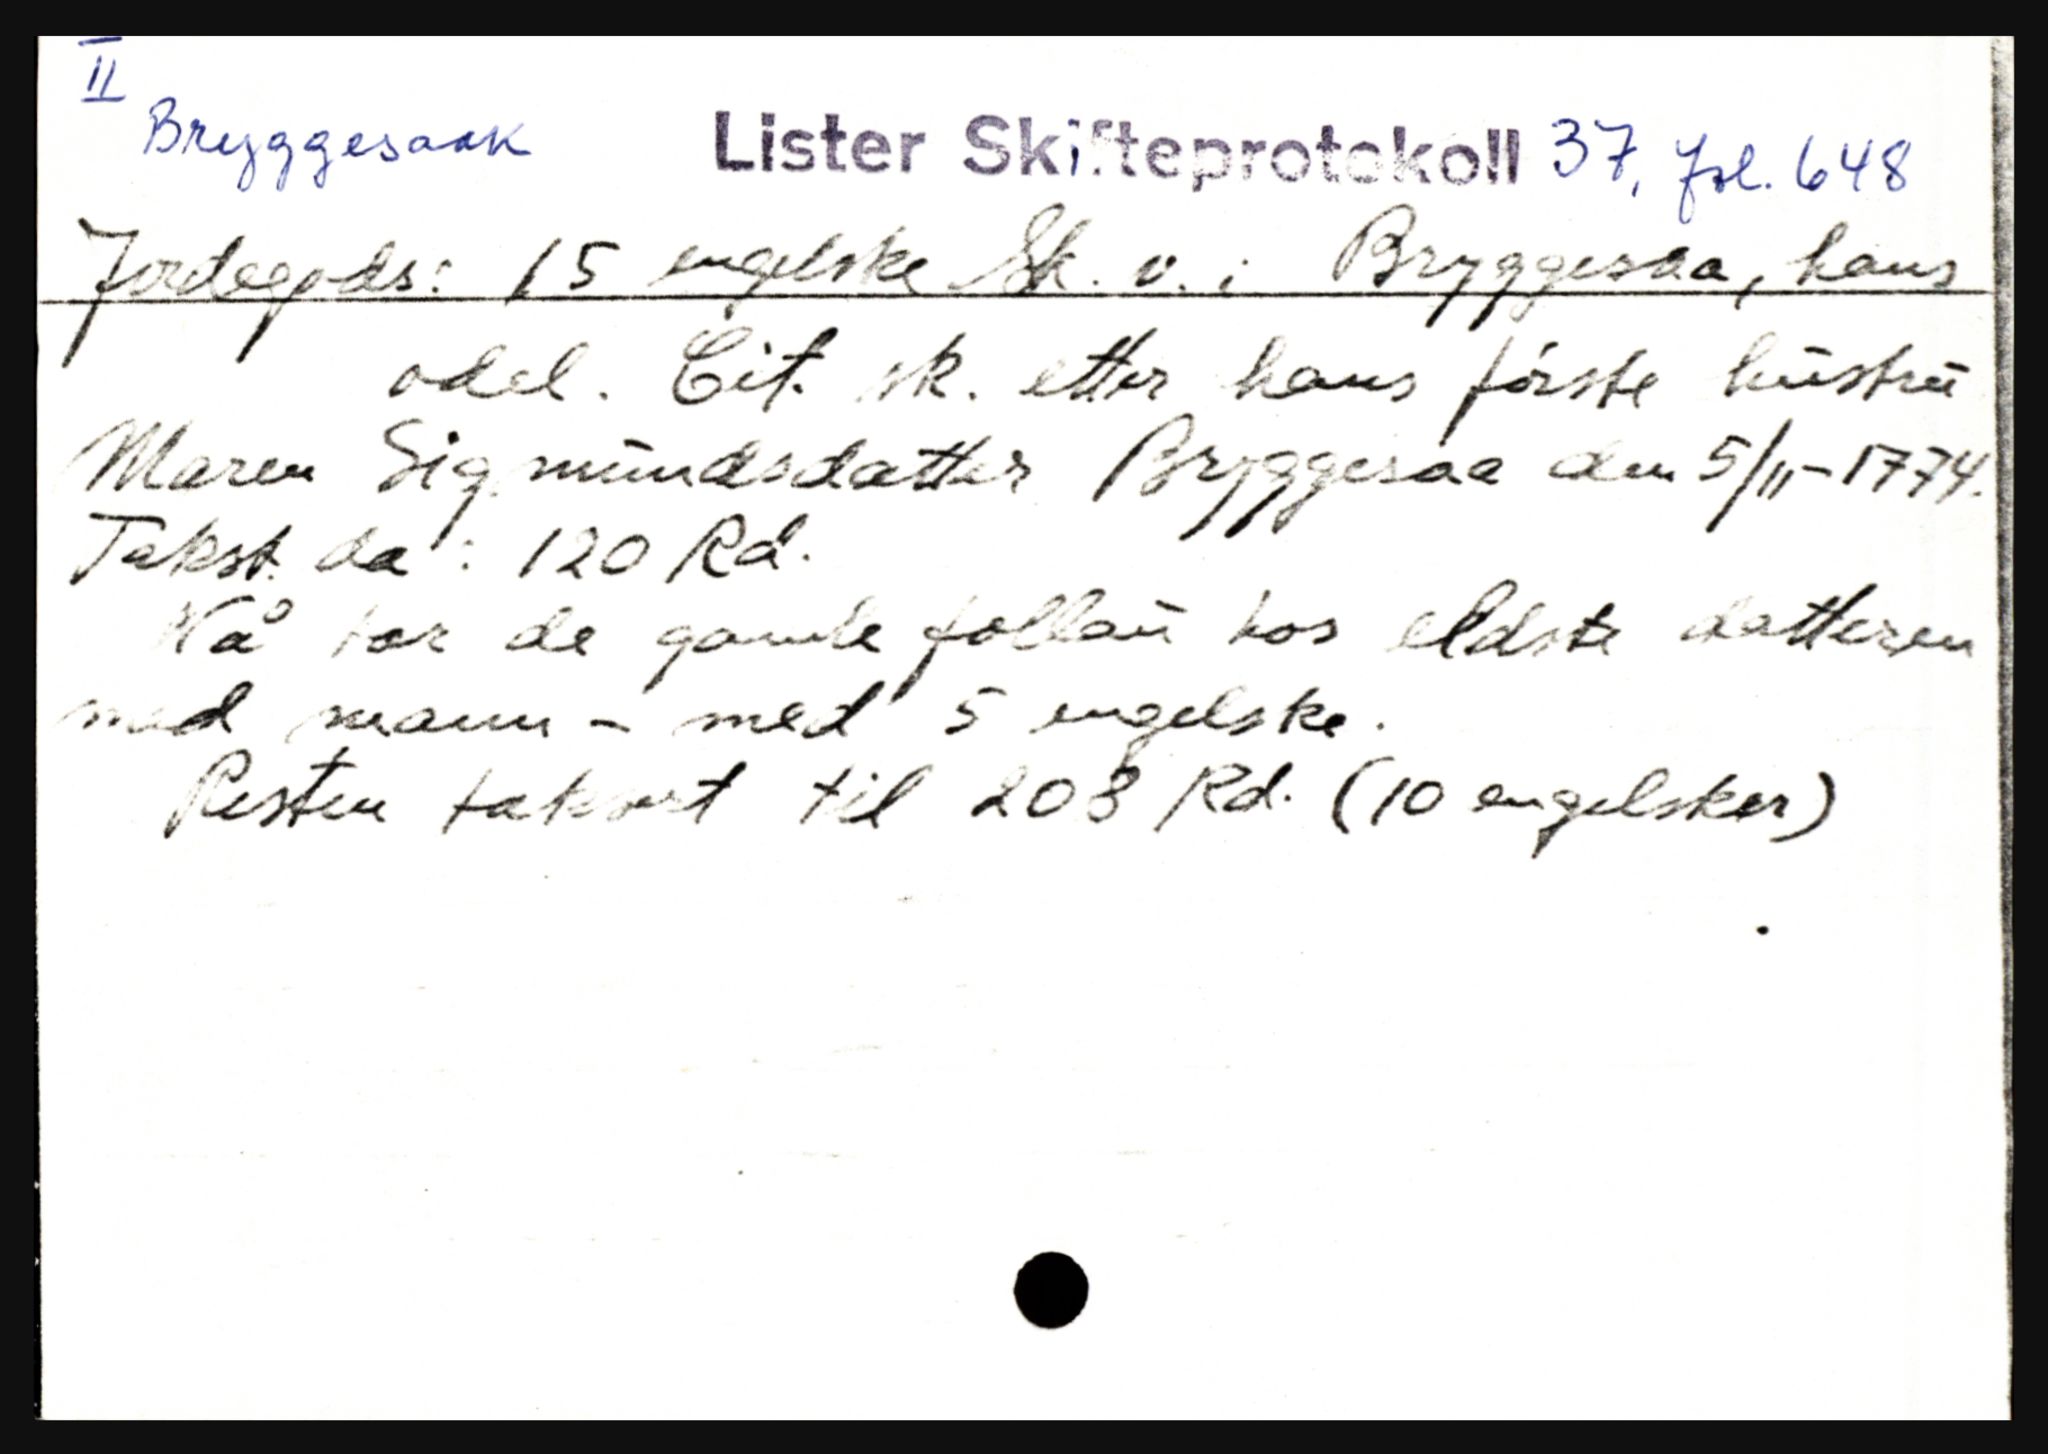 II
Bryggesaak Lister Skifteprotokoll 37, fol. 648
Jordegods: 15 engelske Sk. v. i Bryggesaa, hans
odel. Cit. sk. etter hans første hustru
Maren Sigmundsdatter Bryggesaa den 5/11-1774.
Takst da: 120 Rd.
Nå tar de gamle follau hos eldste datteren
med mann - med 5 engelske.
Resten taksert til 208 Rd. (10 engelsker)